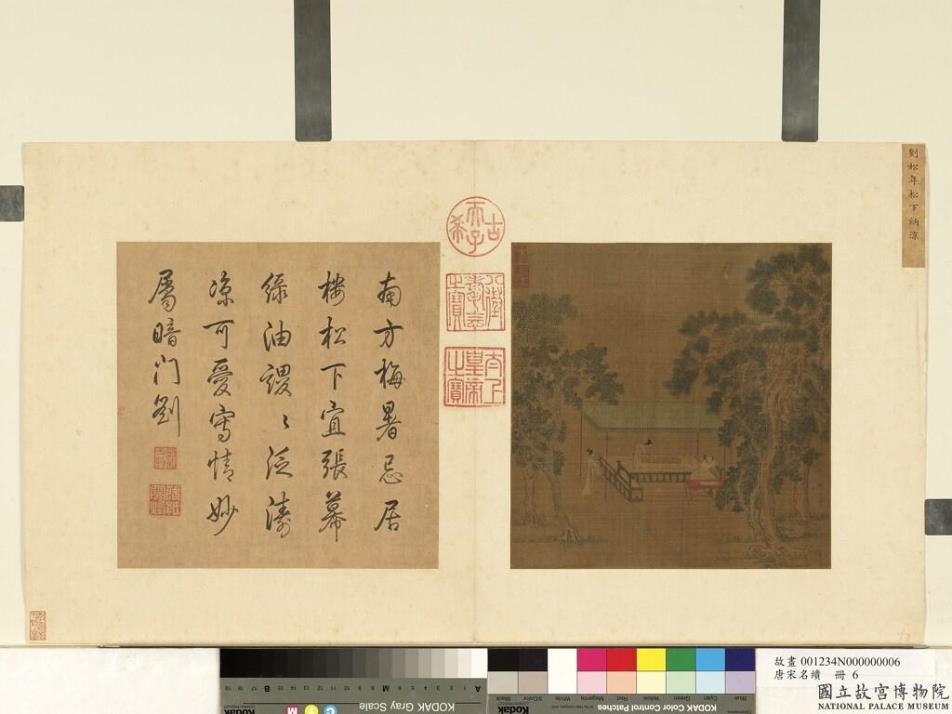 劉松年松下納涼
古希天子
八徵耄念之寶
太上皇帝之寶
南方梅暑忌居
樓松下宜張幕
綠油謖〻泛濤
涼可憂寫情妙
屬暗門劉
故畫 001234N000000006
唐宋名繢 冊 6
國立故宮博物院
NATIONAL PALACE MUSEUM
KODAK Gray Scale
Kodak
KODAK Color Control Patches
A
M
B